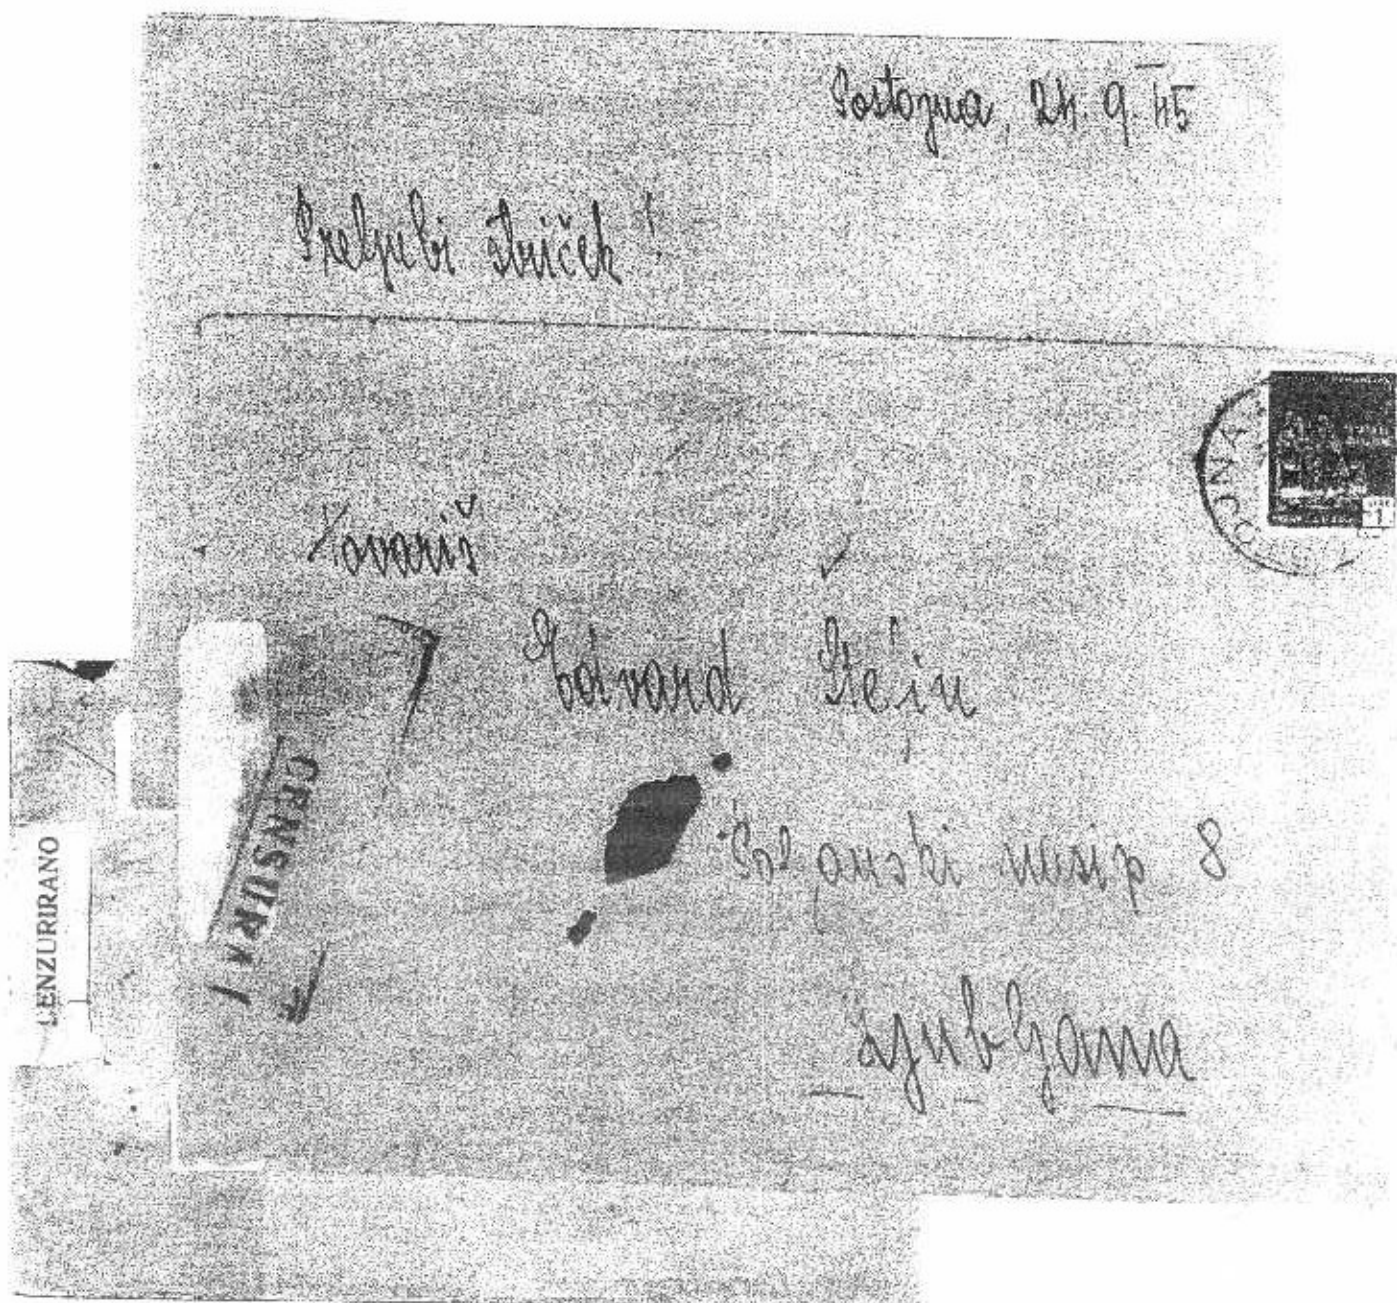 Postojna, 24. 9. 45
Preljubi striček!
Tovariš
Edvard
Poljanski nasip 8
Ljubljana
CENSURA
CENZURIRANO
1